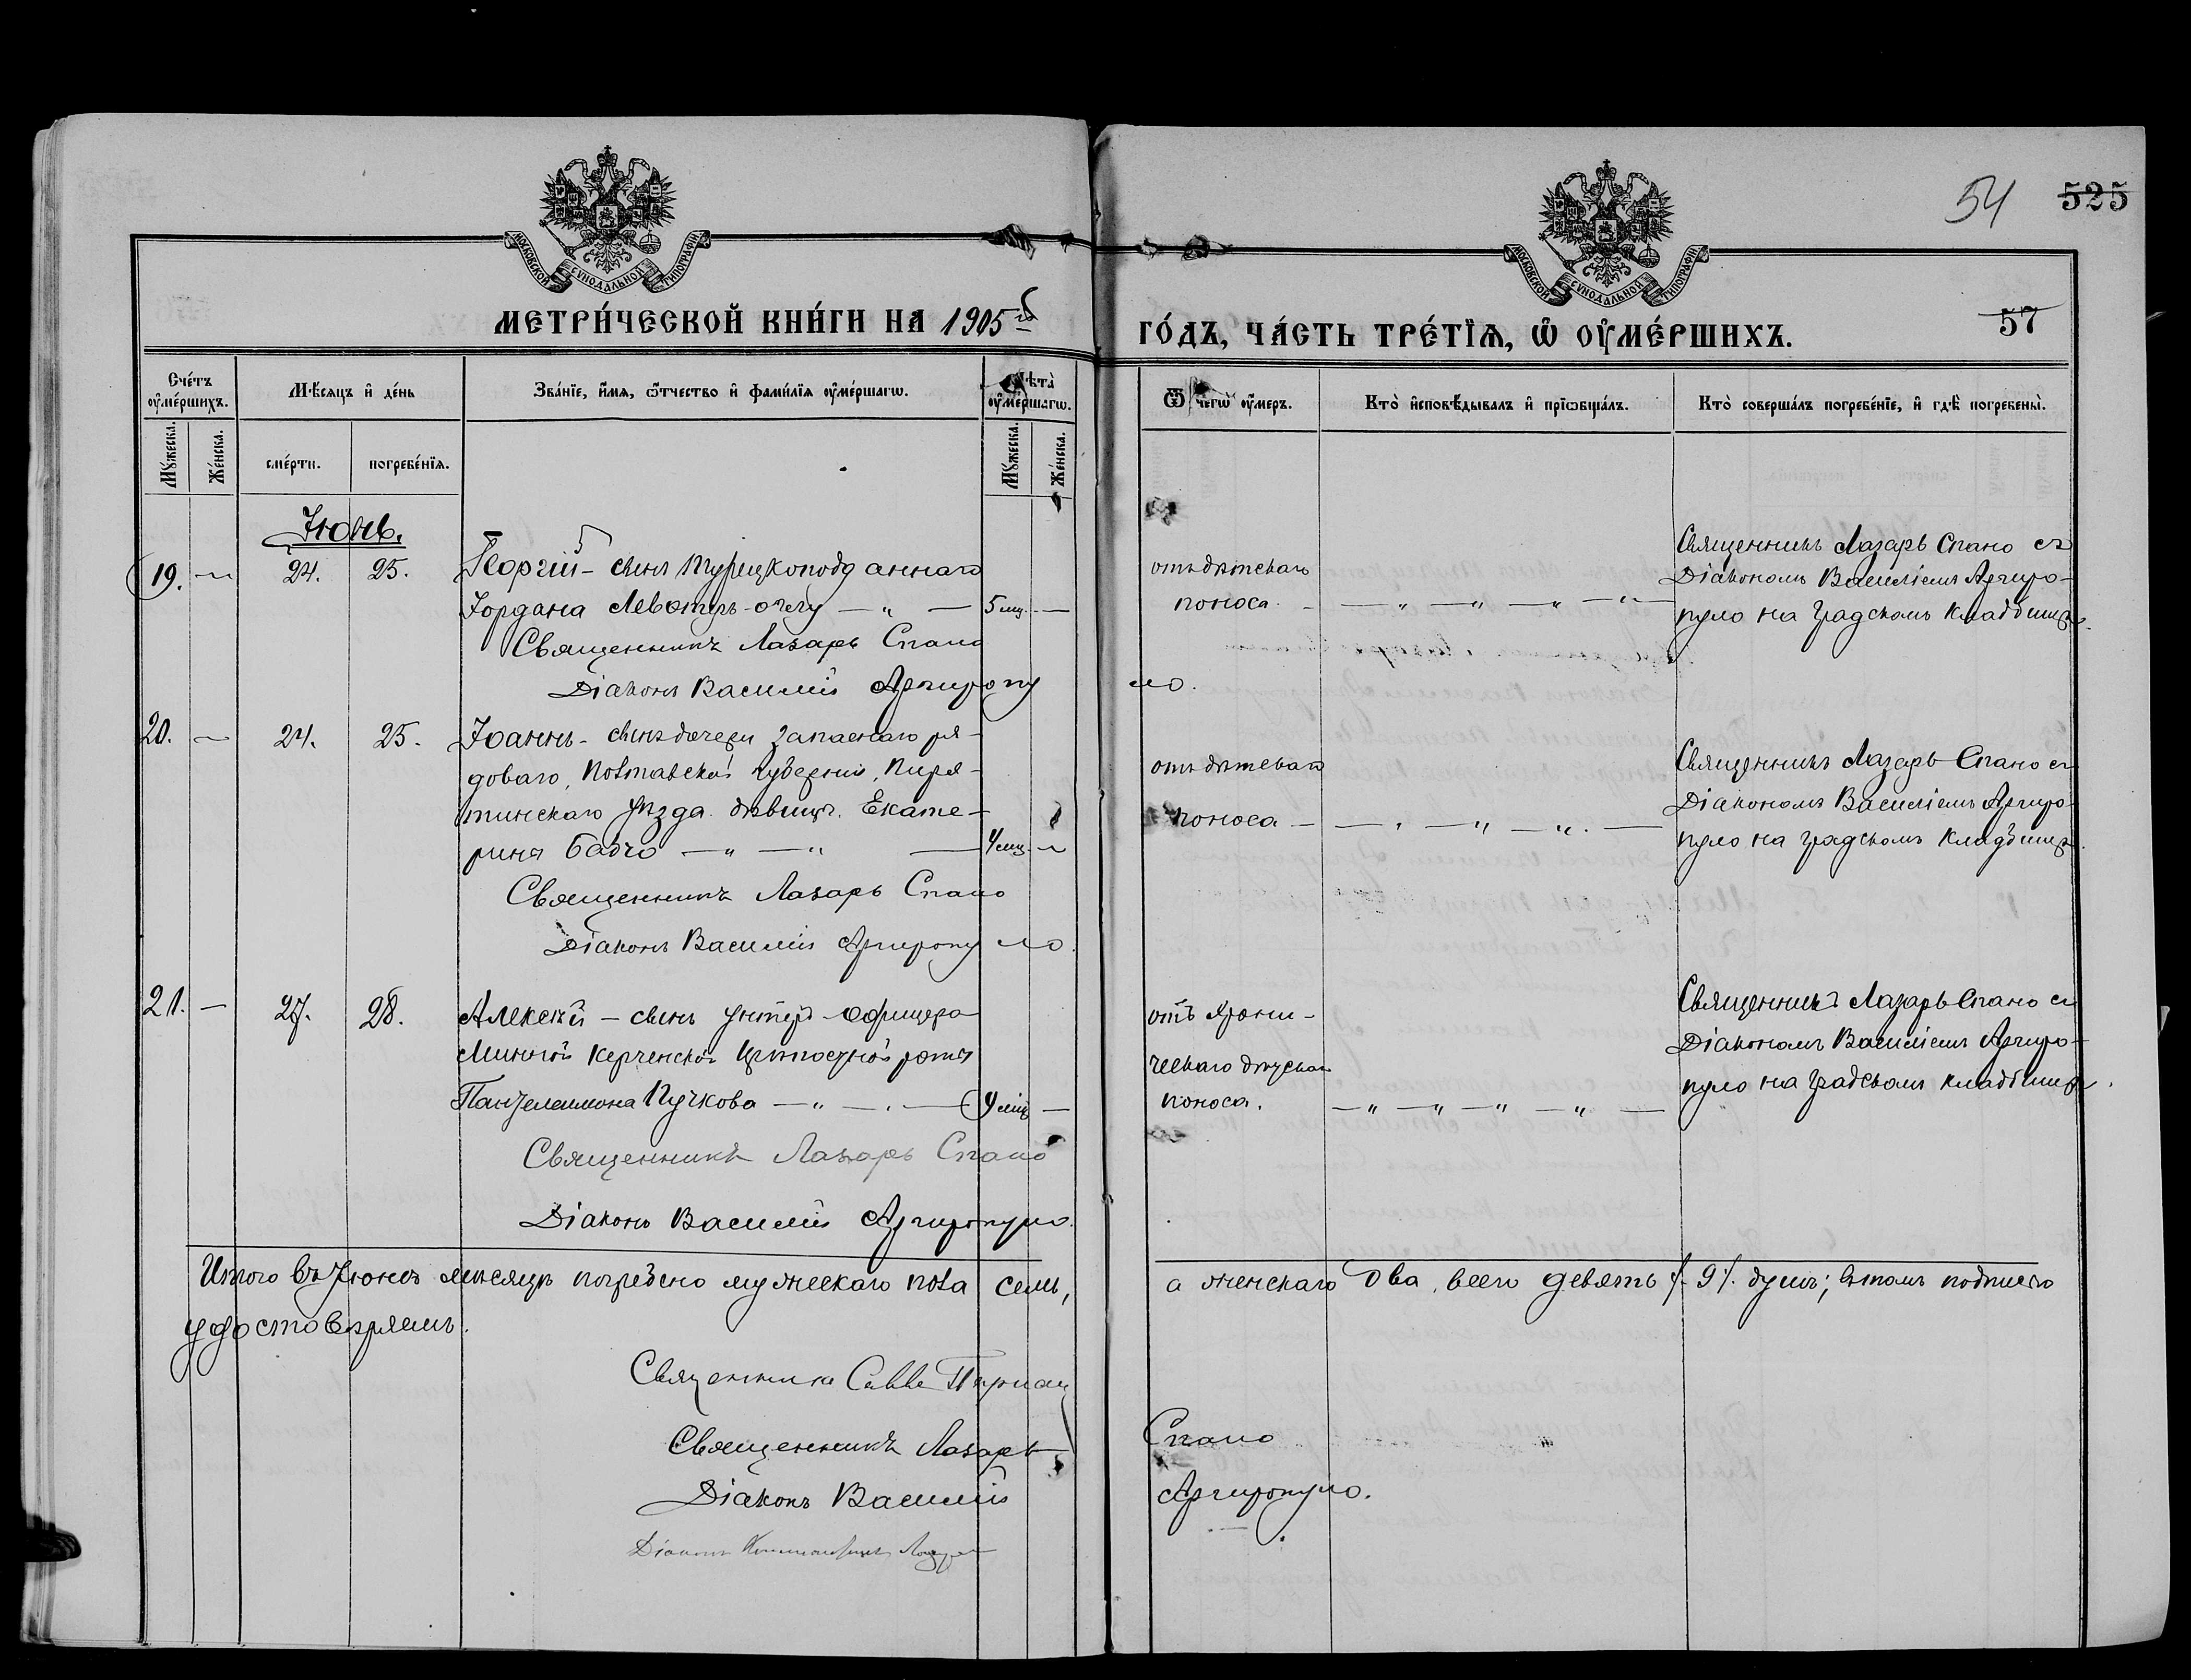 МОСКОВСКОЙ СУНОДАЛЬНОЙ ТИПОГРАФІИ
МОСКОВСКОЙ СУНОДАЛЬНОЙ ТИПОГРАФІИ
54 525
57
МЕТРИ́ЧЕСКОЙ КНИ́ГИ НА 1905 го
ГО́ДЪ, ЧА́СТЬ ТРЕ́ТІѦ, Ѽ ОУ҆МЕ́РШИХЪ.
Сче́тъ оу҆ме́ршихъ.
Мѣ́сяцъ и҆ де́нь
Зва́нїе, и҆́мя, ѻ҆́тчество и҆ фами́лїя оу҆ме́ршагѡ.
Лѣ́та оу҆ме́ршагѡ.
Ѿ чегѡ̀ оу҆́меръ.
Кто̀ и҆сповѣ́дывалъ и҆ прїѡбща́лъ.
Кто̀ соверша́лъ погребе́нїе, и҆ гдѣ̀ погребены̀.
Мꙋ́жеска.
Же́нска.
сме́рти.
погребе́нїя.
Мꙋ́жеска.
Же́нска.
Іюнь.
19. — 24. 25. Георгій - сынъ турецкоподданнаго
Іордана - — " — 5 мц. —
Священникъ Лазарь Спано
Діаконъ Василій Аргиропуло.
отъ дѣтскаго
поноса. — — " — " — " — " —
Священникъ Лазарь Спано съ
Діакономъ Василіемъ Аргиро-
пуло на градскомъ кладбищѣ.
20. — 24. 25. Іоаннъ - сынъ дочери запаснаго ря-
доваго, Полтавской губерніи, Пиря-
тинскаго уѣзда дѣвицы Екате-
рины Бабчо — " — " — 4 мц. —
Священникъ Лазарь Спано
Діаконъ Василій Аргиропуло.
отъ дѣтскаго
поноса — — " — " — " —
Священникъ Лазарь Спано съ
Діакономъ Василіемъ Аргиро-
пуло на градскомъ кладбищѣ.
21. — 27. 28. Алексѣй - сынъ унтеръ-офицера
Минной Керченской крѣпостной роты
Пантелеимона Пучкова — " — " — мц —
Священникъ Лазарь Спано
Діаконъ Василій Аргиропуло.
отъ хрони-
ческаго дѣтскаго
поноса. — " — " — " — " —
Священникъ Лазарь Спано съ
Діакономъ Василіемъ Аргиро-
пуло на градскомъ кладбищѣ.
Итого въ Іюнѣ мѣсяцѣ погребено мужескаго пола семь, а женскаго два, всего девять /. 9 /. душъ; въ томъ подписью
удостовѣряемъ.
Священникъ Савва
Священникъ Лазарь Спано
Діаконъ Василій Аргиропуло.
Діаконъ